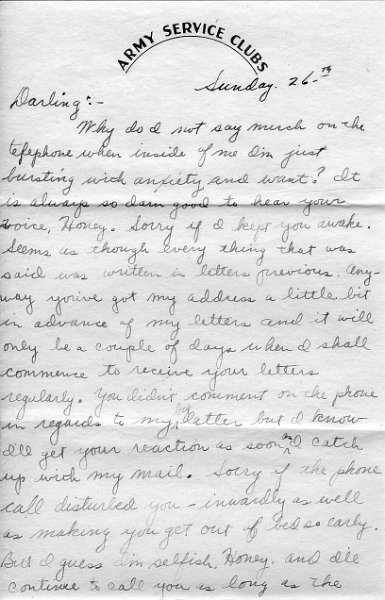 ARMY SERVICE CLUBS
Sunday. 26th
Darling:-
Why do I not say much on the
telephone when inside of me I'm just
bursting with anxiety and want? It
is always so darn good to hear your
voice, Honey. Sorry if I kept you awake.
Seems as though every thing that was
said was written in letters previous. Any-
way you've got my address a little bit
in advance of my letters and it will
only be a couple of days when I shall
commence to receive your letters
regularly. You didn't comment on the phone
in regards to my big latter but I know
I'll get your reaction as soon as I catch
up with my mail. Sorry if the phone
call disturbed you - inwardly as well
as making you get out of bed so early.
But I guess I'm selfish, Honey. and I'll
continue to call you as long as the